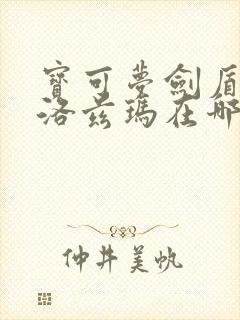 寶可夢劍盾
洛茲瑪在哪
仲井美帆